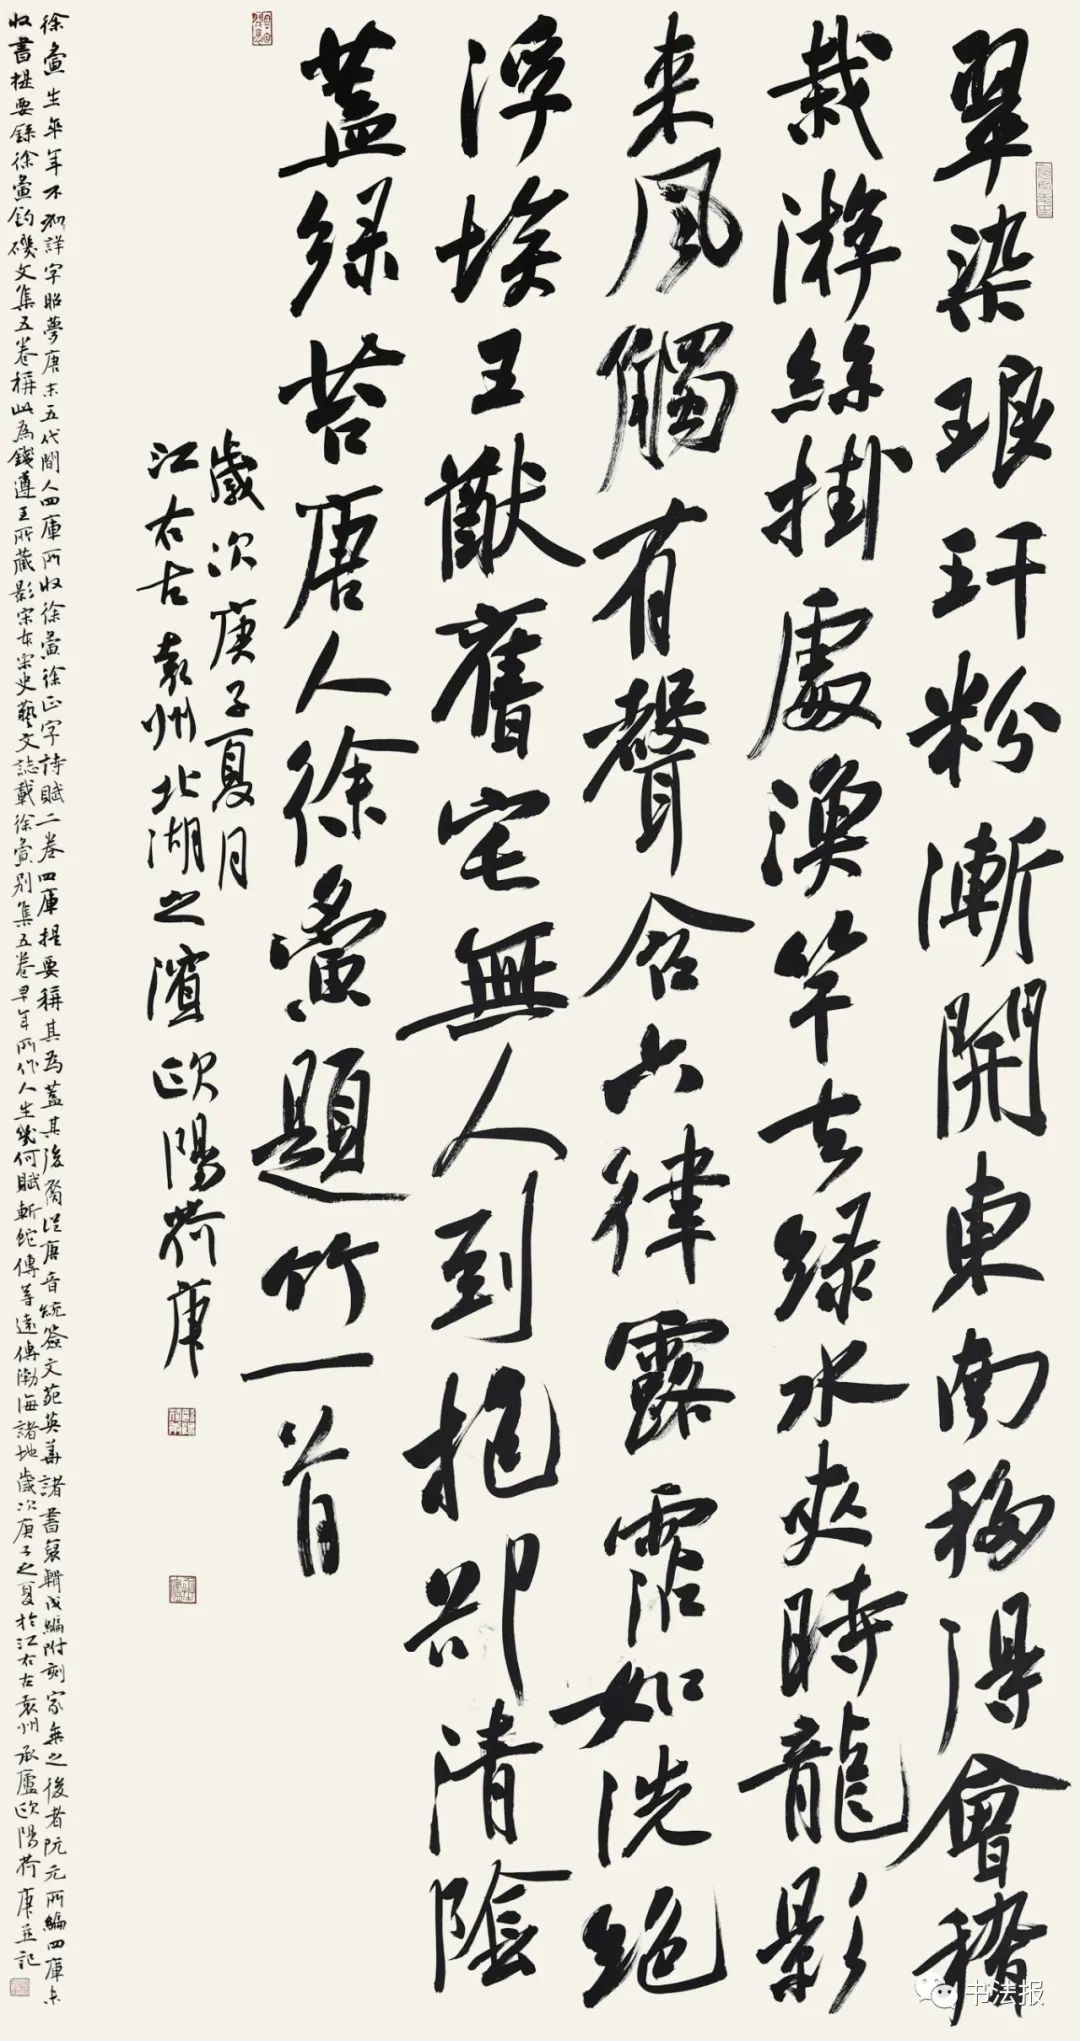 翠染琅玕粉漸開東南移得會稽
栽游絲掛處漁竿去綠水夾時龍影
来風觸有聲含六律露霑如洗絕
浮埃王猷舊宅無人到抱郤清陰
蓋綠苔唐人徐夤題竹一首
歲次庚子夏月
江右古袁州北湖之濱歐陽荷庚
徐夤生卒年不詳字昭夢唐末五代間人四庫所收徐夤徐正字詩賦二卷四庫提要稱其為蓋其後裔從唐音統簽文苑英華諸書裒輯成編附刻家乘之後者阮元所編四庫未
收書提要錄徐夤釣磯文集五卷稱此為錢遵王所藏影宋本宋史藝文誌載徐夤別集五卷早年所作人生幾何賦斬蛇傳等遠傳渤海諸地歲次庚子之夏於江右古袁州承廬歐陽荷庚並記
书法报